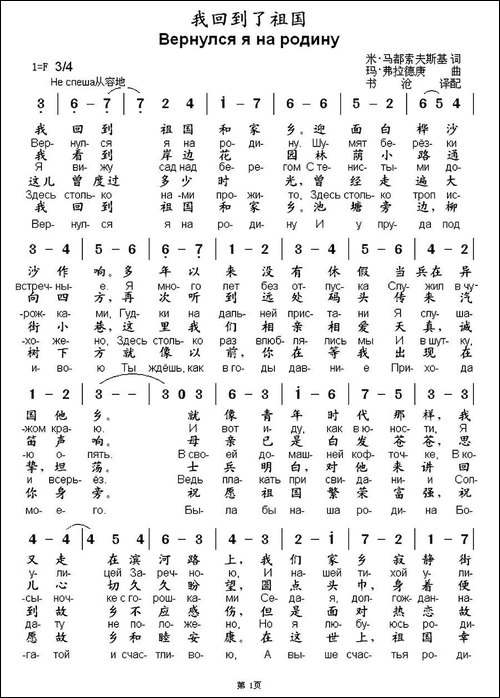 我回到了祖国
Вернулся я на родину
米·马都索夫斯基 词
1=F 3/4
玛·弗拉德庚 曲
Не спеша从容地
书 沧 译配
3 | 6 - 7 | 7 2 4 | i - 7 | 6 - 7 | 6 - 6 | 6 5 4 |
我 回到 祖国 和家 乡。迎 面白 桦沙
Вер- нул-ся я на ро- ди- ну. Шу- мят бе- рёз-ки
我 看到 岸边 花 园林 荫小 路通
Я ви- жу сад над бе- ре- гом С те- нис- ты- ми до-
这儿 曾度过 多少 时 光，曾 经走 遍大
Здесь столь- ко на -ми про- жи- то, Здесь столь-ко троп ис-
我 回到 祖国 和家 乡。池 塘旁 边，柳
Вер- нул-ся я на ро- ди- ну И у пру- да под
3 - 4 | 5 - 6 | 6 - 7 | 1 - 2 | 3 - 3 | 3 - 3 | 4 - 3 |
沙作 响。多 年以 来没 有休 假当 兵在异
встреч-ны- е. Я мно- го лет без от- пус- ка Слу- жил в чу-
向四 方，再 次听 到远 处码 头传 来汽
-рож- ками, Гуд- ки на даль- ней прис- тани Я слу- ша-
街小 巷，这里 我们 相亲 相爱 天真，诚
-хо- же- но, Здесь столь- ко раз влюб- ля- лись мы И в шут- ку,
树下 方就 像以 前，你 在等 我出 现在
и- во- ю Ты ждёшь, как в го ды дав- ние При- хо- да
1 - 2 | 3 - 3 | 3 0 3 | 6 - 3 | i - 6 | 7 - 5 | 3 - 3 |
国他 乡。 就 像青 年时 代那 样，我
-жом кра- ю. И вот и- ду, как в ю- нос- ти, Я
笛声 响。 母 亲已 是白 发苍 苍，思
-ю о -пять. В сво- ей до- маш- ней коф- точ- ке, В ко-
挚，坦 荡。 士 兵明 白，对 他来 讲回
и всерь- ёз. Ведь пла- кать при сви- да- ни- и Сол-
你身 旁。 祝 愿祖 国繁 荣富 强，祝
мо- е- го. Бы- ла бы на- ша ро- ди- на Бо-
4 - 4 | 4 5 | 4 - 3 | 2 - 2 | 2 - 4 | 3 - 2 | 1 - 7 |
又走 在滨 河路 上，我 们家 乡寂 静街
у- ли- цей За- реч- но- ю, И на- шей ти- хой у- ли-
儿心 切久 久盼 望，圆 点头 巾，身 着便
-сы- ноч- ке с го- рош- ка- ми Се- да- я, дол- гож- дан-на-
到故 乡不 应感 伤，但 是面 对热 恋故
да- ту не по- ло- же- но, Но я лю- бу- юсь ро- ди-
愿故 乡和 睦安 康。在 这世 上，祖 国幸
-га- той и счас- тли- во- ю, А вы- ше счасть- я ро- ди-
第 1页